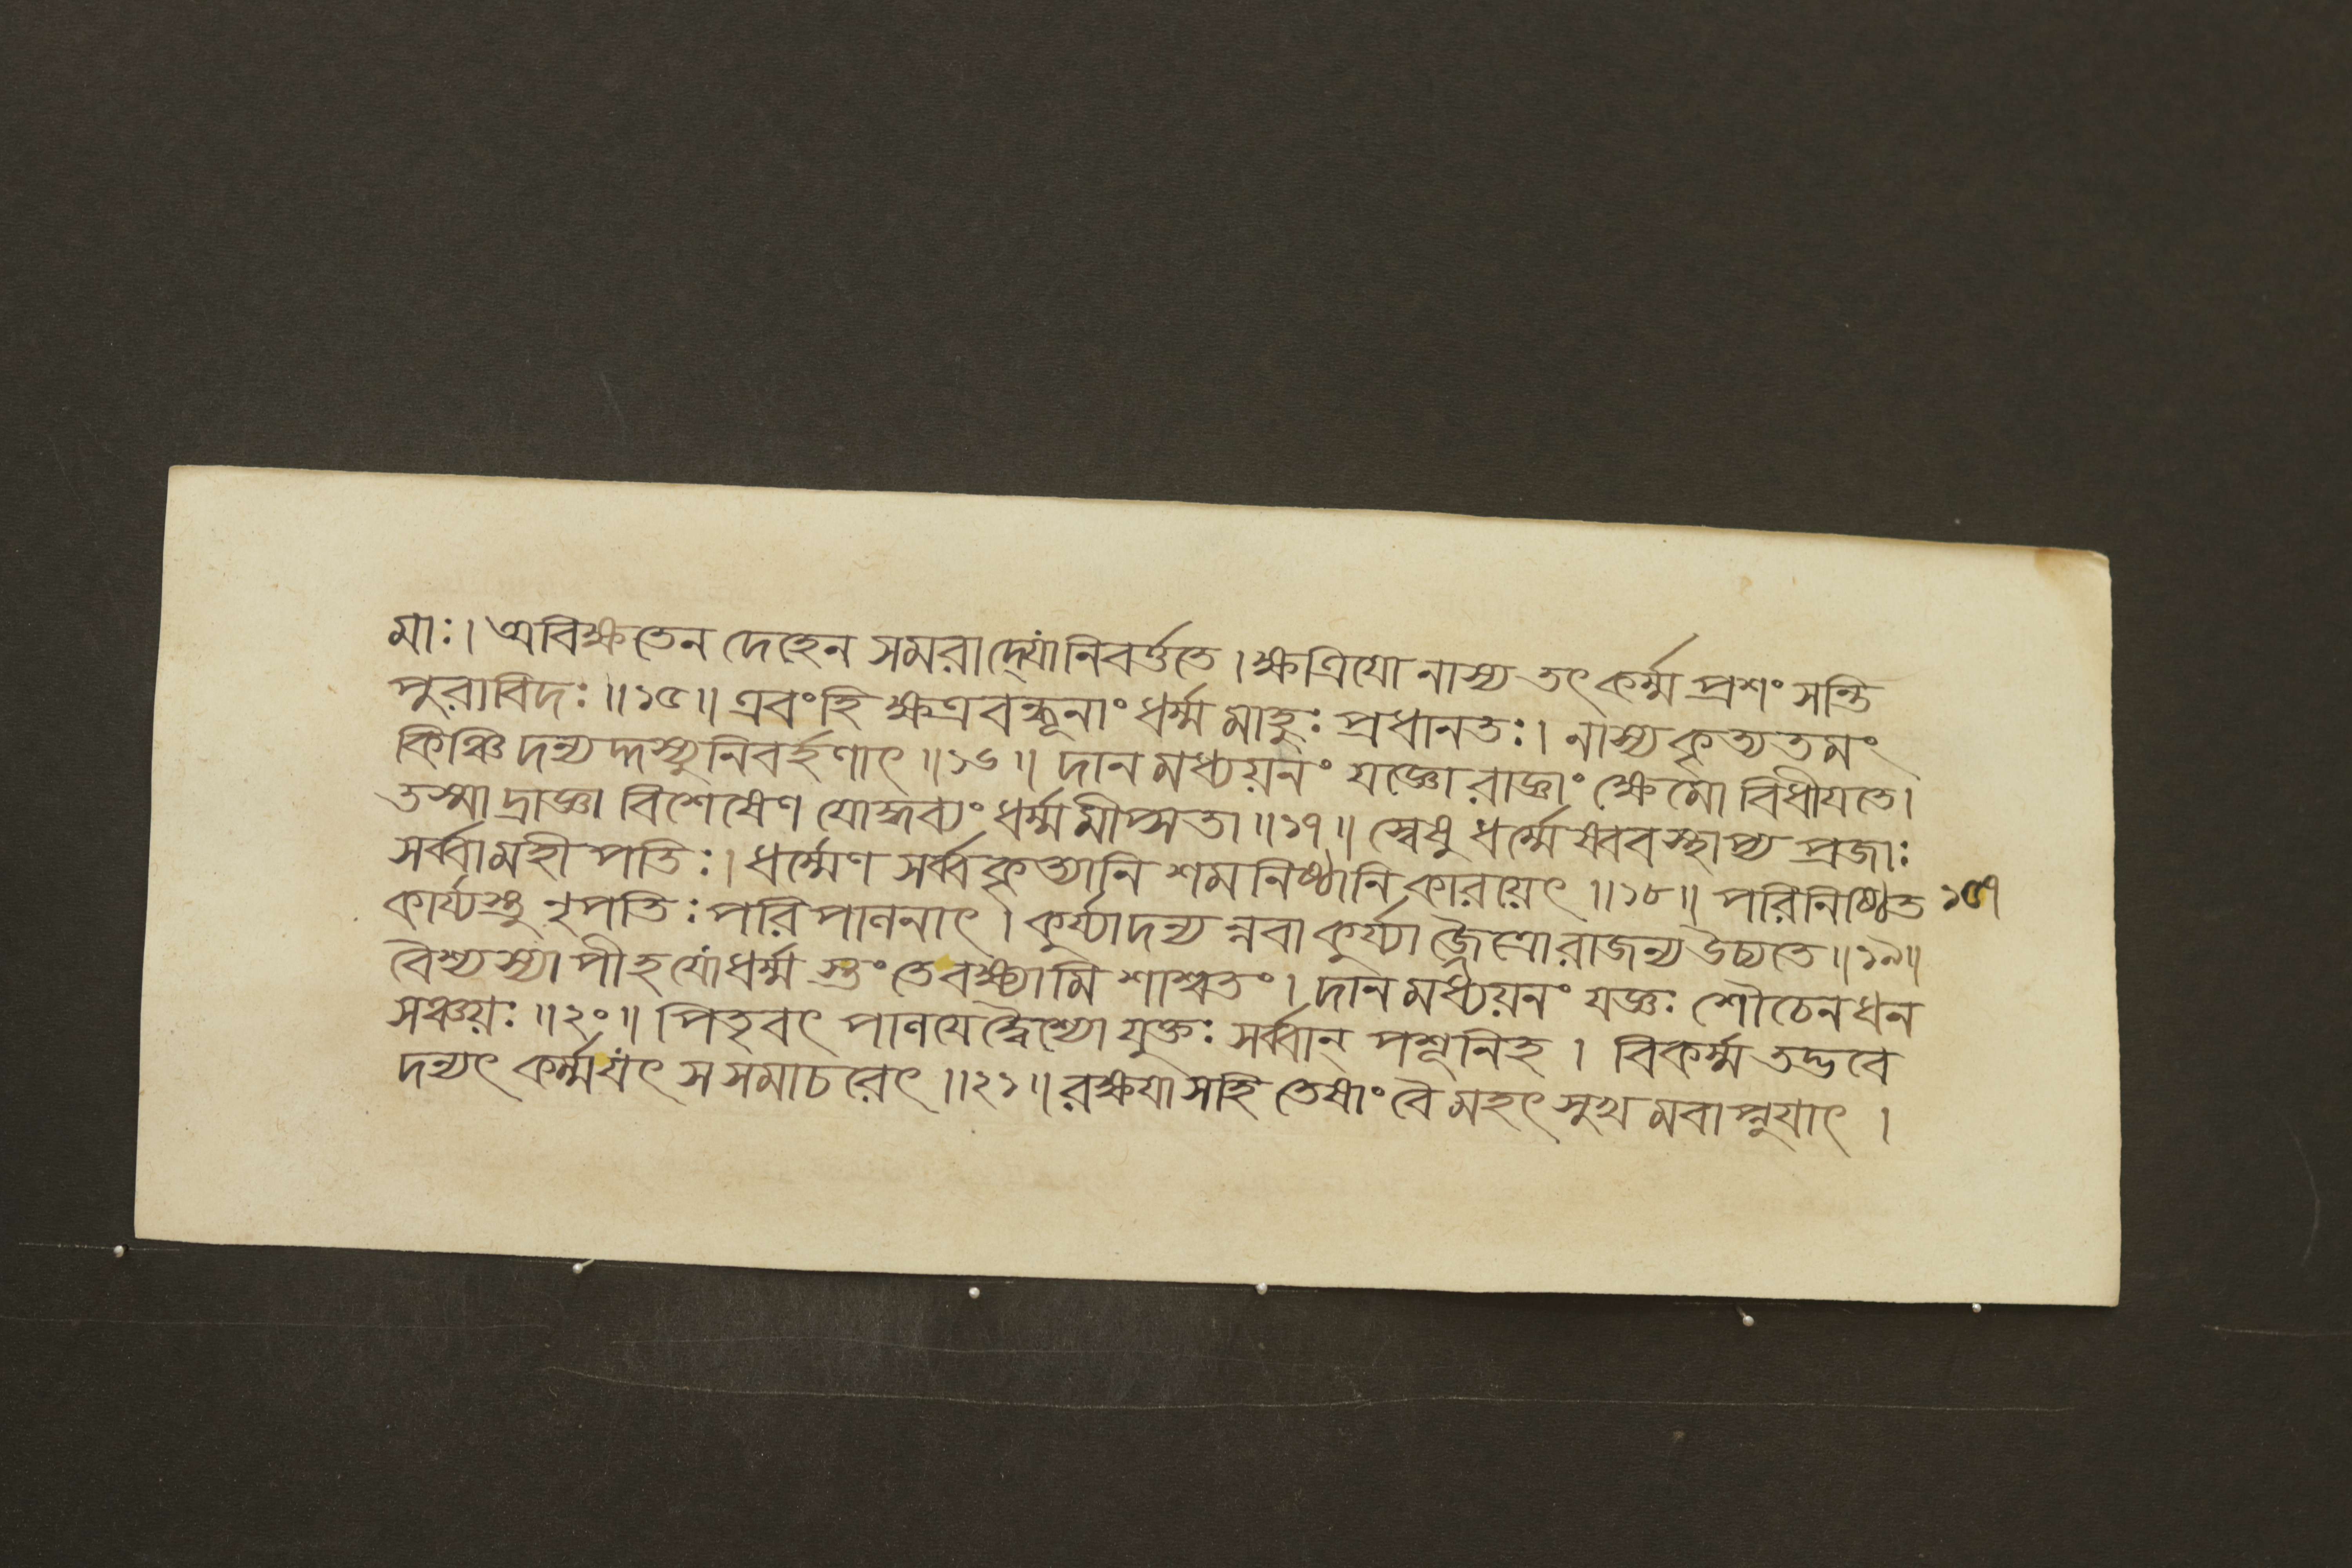 মাঃ। অবিক্ষতেন দেহেন সমরাদ্যো নিবর্ত্ততে। ক্ষত্রিযো নাস্য তৎ কর্ম্ম প্রশংসন্তি
পুরাবিদঃ॥১৫॥ এবং হি ক্ষত্রবন্ধূনাং ধর্ম্মমাহুঃ প্রধানতঃ। নাস্য কৃত্যতমং
কিঞ্চিদন্যদ্দস্যুনিবর্হণাৎ॥১৬॥ দানমধ্যয়নং যজ্ঞো রাজ্ঞাং ক্ষেমো বিধীযতে।
তস্মাদ্রাজ্ঞা বিশেষেণ যোদ্ধব্যং ধর্ম্মমীপ্সতা॥১৭॥ স্বেষু ধর্ম্মেষ্ববস্থাপ্য প্রজাঃ
সর্ব্বা মহীপতিঃ। ধর্ম্মেণ সর্ব্বকৃত্যানি শমনিষ্ঠানি কারয়েৎ॥১৮॥ পরিনিষ্ঠিত ১৫৭
কার্য্যস্তু নৃপতিঃ পরিপাণনাৎ। কুর্য্যাদন্যন্নবা কুর্য্যা জৈত্রো রাজন্য উচ্যতে॥১৯॥
বৈশ্যস্যাপীহ যো ধর্ম্মস্তং তে বক্ষ্যামি শাশ্বতং। দানমধ্যয়নং যজ্ঞঃ শৌচেন ধন
সঞ্চয়ঃ॥২০॥ পিতৃবৎ পাণযেদ্বৈশ্যো যুক্তঃ সর্ব্বান্ পশূনিহ। বিকর্ম্ম তদ্ভবে
দন্যৎ কর্ম্ম যৎ স সমাচরেৎ॥২১॥ রক্ষযা স হি তেষাং বৈ মহৎ সুখমবাপ্নুযাৎ।